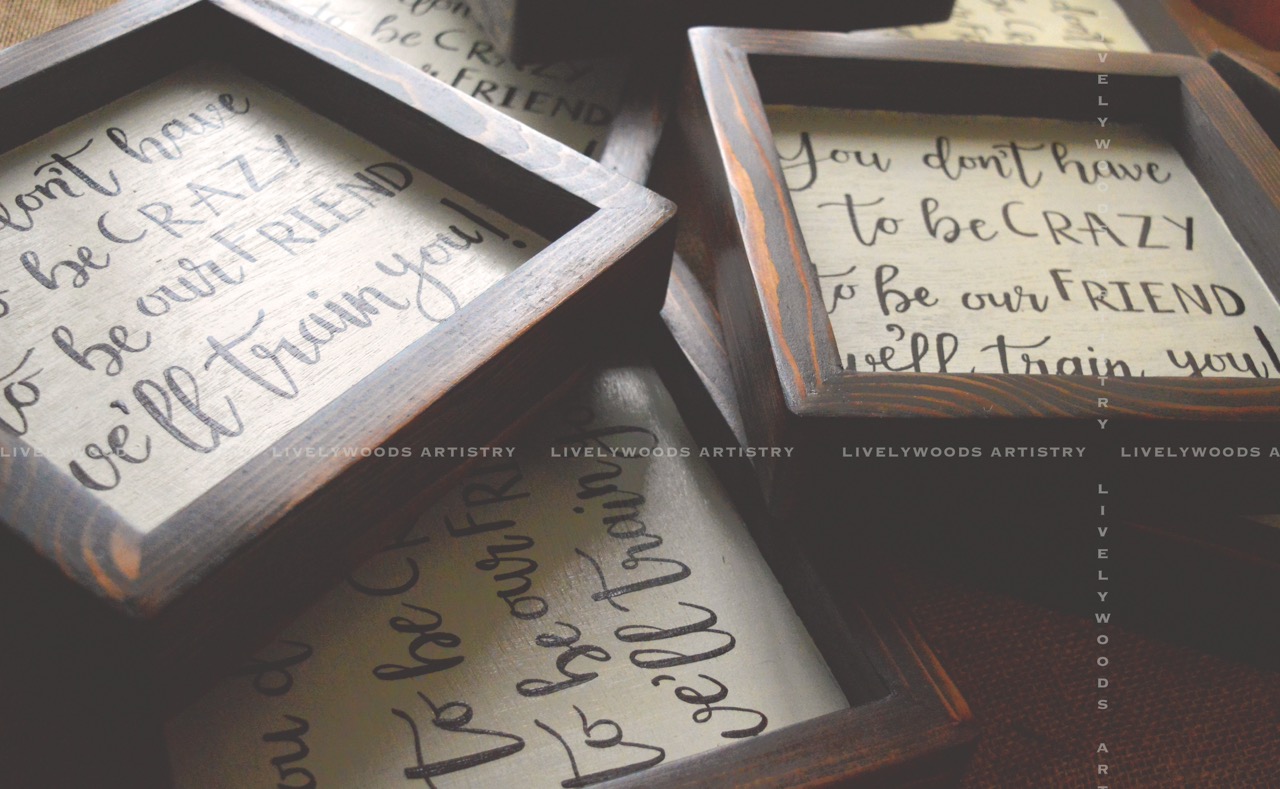 don't have
be CRAZY
to be our FRIEND
we'll train you!
be CRAZY
FRIEND
You don't have
to be CRAZY
to be our FRIEND
we'll train you!
to be
to be our
we'll train
LIVELYWOODS ARTISTRY LIVELYWOODS ARTISTRY LIVELYWOODS ARTISTRY LIVELYWOODS A
VELYWOODS
TRY
LIVELYWOODS
ART